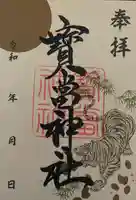 奉拝
寶當神社
令和　年　月　日